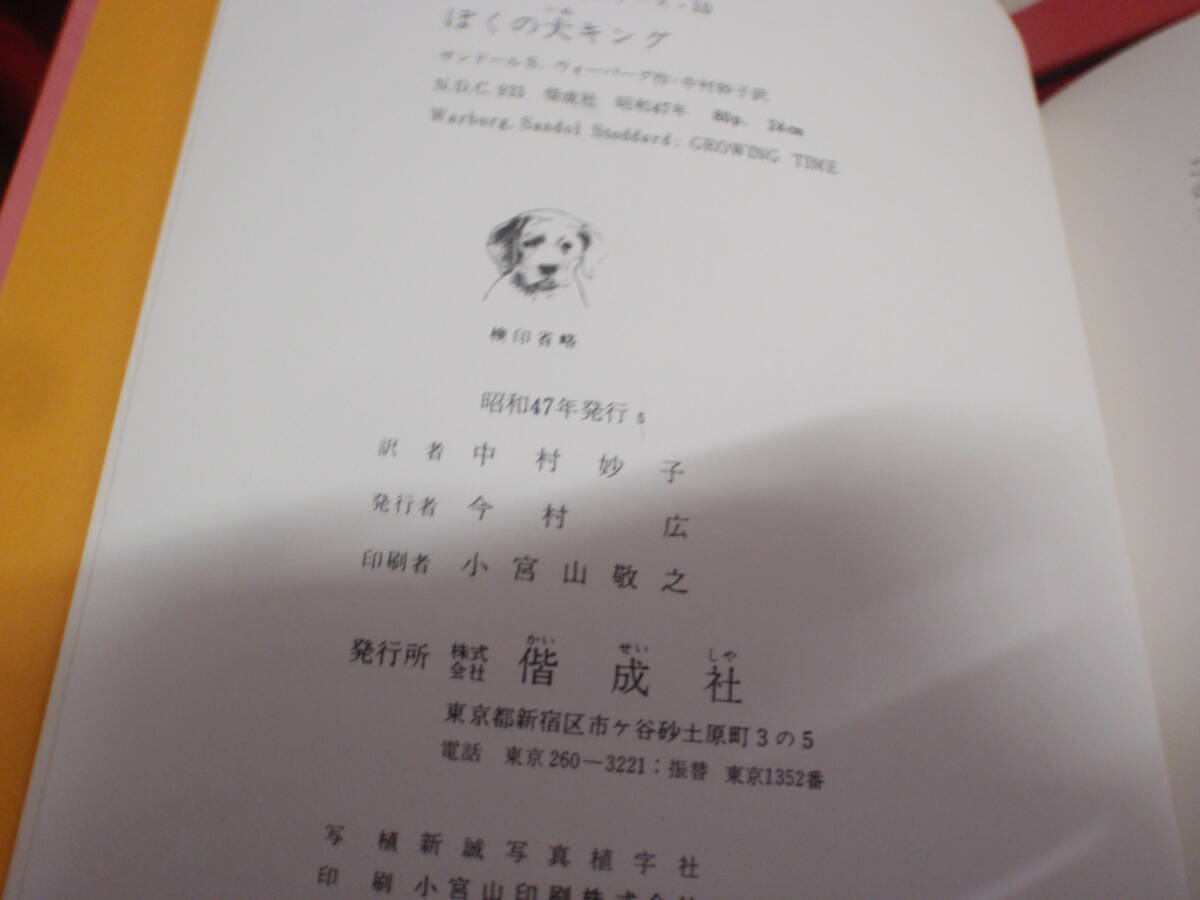 ぼくの犬キング
サンドールS. ウォーバーグ作・中村妙子訳
N.D.C. 933 偕成社 昭和47年 80p. 24cm
Warburg, Sandol Stoddard: GROWING TIME
検印省略
昭和47年発行 5
訳者 中村妙子
発行者 今村広
印刷者 小宮山敬之
発行所 株式会社 偕成社
かい せい しゃ
東京都新宿区市ケ谷砂土原町3の5
電話 東京260—3221:振替 東京1352番
写植 新誠写真植字社
印刷 小宮山印刷株式会社